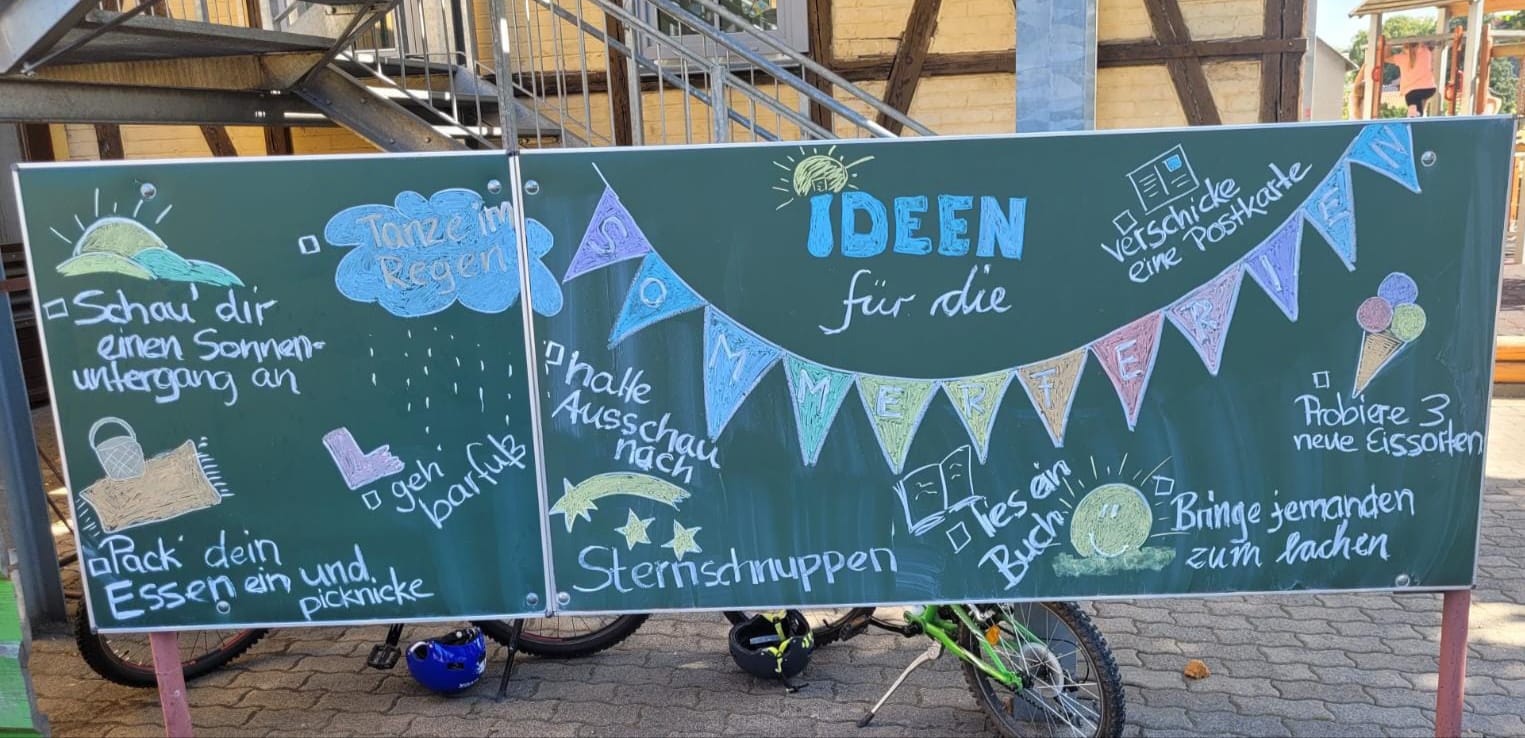 IDEEN
für die
SOMMERFERIEN
Schau' dir
einen Sonnen-
untergang an
Tanze im
Regen
geh'
barfuß
Pack' dein
Essen ein und
picknicke
halte
Ausschau
nach
Sternschnuppen
verschicke
eine Postkarte
Probiere 3
neue Eissorten
lies ein
Buch
Bringe jemanden
zum lachen